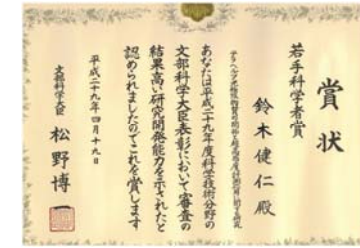 賞状
若手科学者賞
鈴木健仁殿
あなたは平成二十九年度科学技術分野の
文部科学大臣表彰において審査の
結果高い研究開発能力を示されたと
認められましたのでこれを賞します
平成二十九年四月十九日
文部科学大臣 松野博